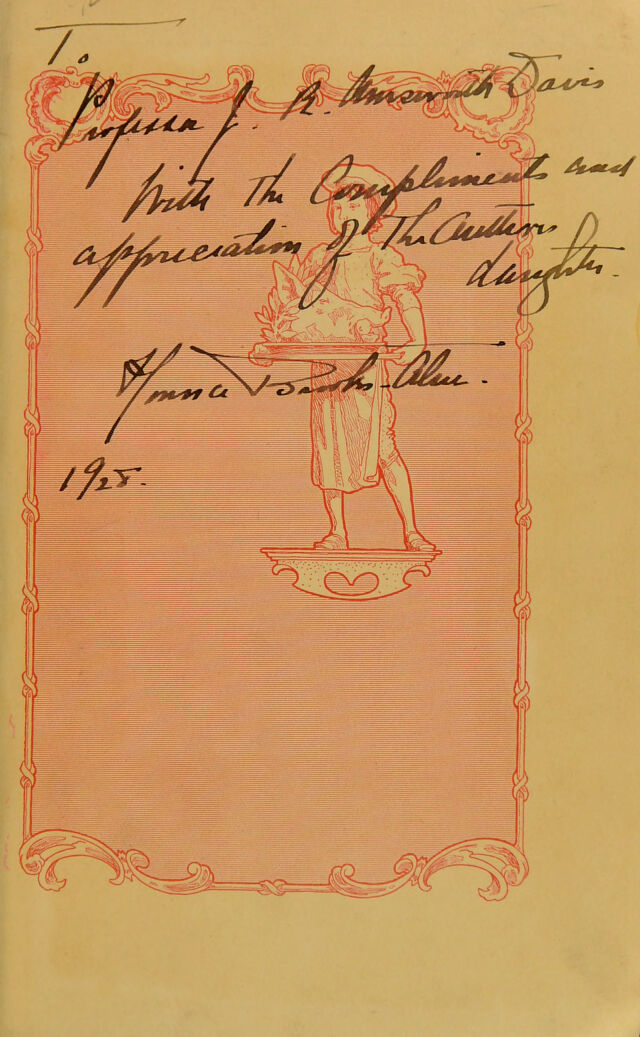 To
Professor J. R. Ainsworth Davis
With The Compliments and
appreciation of The Authors
daughter.
1928.